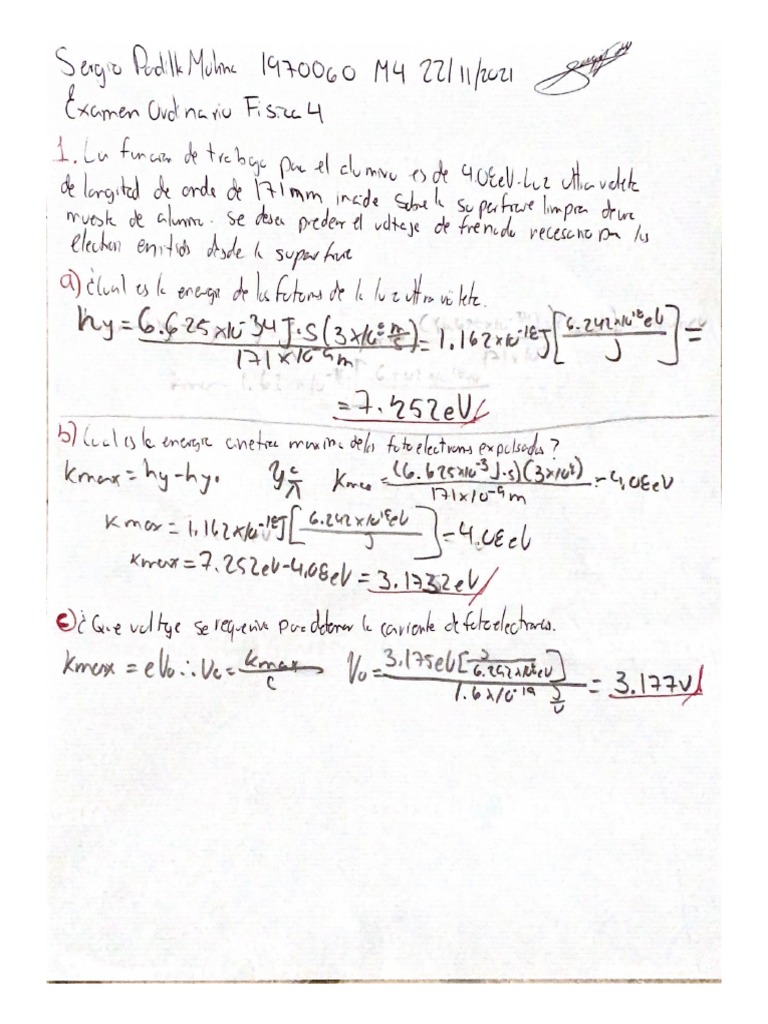 Sergio Padilla Molina 1970060 M4 22/11/2021
Examen Ordinario Fisica 4
1. La funcion de trabajo para el aluminio es de 4.08eV. Luz ultravioleta
de longitud de onda de 171mm incide sobre la superficie limpia de una
muestra de aluminio. Se desea predecir el voltaje de frenado necesario para los
electron emitidos desde la superficie
a) ¿Cual es la energia de los fotones de la luz ultravioleta.
hy = 6.625x10^-34 J·S (3x10^8 m/s) / 171x10^-9 m = 1.162x10^-18 J [6.242x10^18 eV / J] =
= 7.252eV
b) Cual es la energia cinetica maxima de los fotoelectrons expulsados?
Kmax = hy-hy₀ y c/λ Kmax = (6.625x10^-3 J·s)(3x10^8) / 171x10^-9 m - 4.08eV
Kmax = 1.162x10^-18 J [6.242x10^18 eV / J] - 4.08eV
Kmax = 7.252eV - 4.08eV = 3.1732eV
c) ¿Que voltaje se requerira para detener la corriente de fotoelectrones.
Kmax = eV₀ ∴ V₀ = Kmax / e V₀ = 3.175eV [J / 6.242x10^18 eV] / 1.6x10^-19 J/V = 3.177V